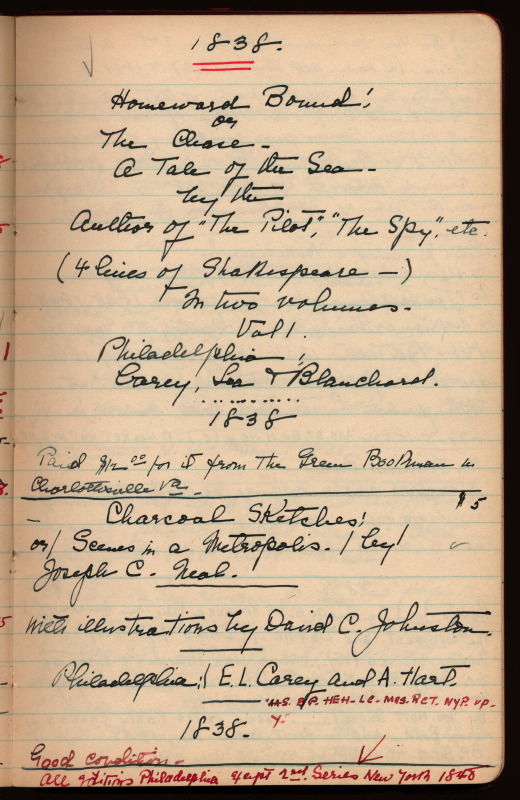 1838.
Homeward Bound!
or
The Chase -
A Tale of the Sea -
by the
Author of "The Pilot", "The Spy", etc.
(4 lines of Shakespeare -)
In two volumes.
Vol 1.
Philadelphia:
Carey, Lea & Blanchard.
1838
Paid $12 00 for it from the Green Bookman in
Charlottesville Va.
$5
- Charcoal Sketches!
or/ Scenes in a Metropolis. / by/
Joseph C. Neal.
With illustrations by David C. Johnston.
Philadelphia:/ E.L. Carey and A. Hart.
BP. HEH- LC- MBS. RCT. NYP. VP-
Y-
1838.
Good condition -
All editions Philadelphia except 2nd Series New York 1840